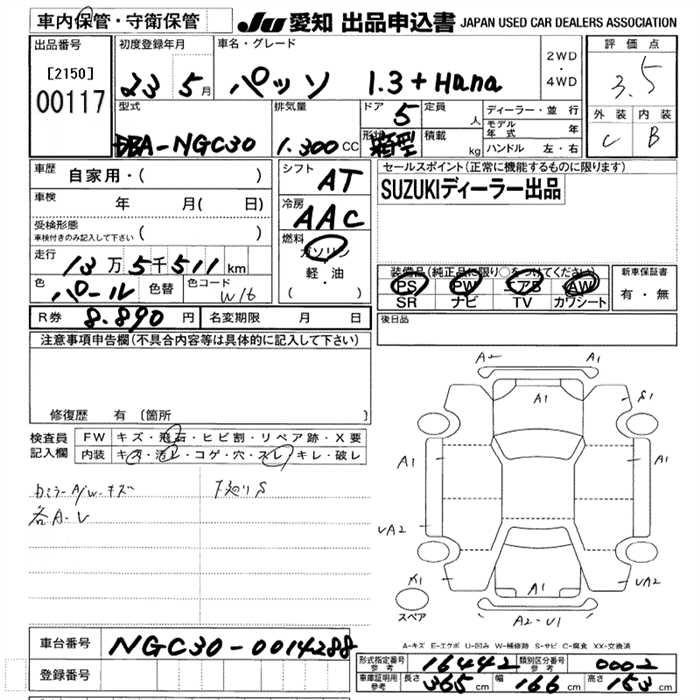 車内保管・守衛保管 JU 愛知 出品申込書 JAPAN USED CAR DEALERS ASSOCIATION
出品番号 初度登録年月 車名・グレード 2WD・4WD 評価点
[2150] 00117 23 5月 パッソ 1.3+Hana 3.5
型式 排気量 ドア 5 定員 人 ディーラー・並行 外装 内装
DBA-NGC30 1.300CC 形状 箱型 積載 kg モデル年式 年 C B
ハンドル 左・右
車歴 自家用・( ) シフト AT セールスポイント(正常に機能するものに限ります)
車検 年 月( 日) 冷房 AAC SUZUKIディーラー出品
受検形態 ( )
車検付きのみ記入して下さい
燃料 ガソリン
走行 13万5千511km 軽・油 装備品(純正品に限り○をつけてください) 新車保証書
色 パール 色替 色コード W16 ( ) PS PW エアB AW 有・無
SR ナビ TV カワシート
R券 8.890円 名変期限 月 日 後日品
注意事項申告欄(不具合内容等は具体的に記入して下さい)
修復歴 有 [箇所
検査員 FW キズ・飛石・ヒビ割・リペア跡・X要
記入欄 内装 キズ・汚レ・コゲ・穴・スレ・キレ・破レ
A/W-キズ S
各A-U
A2 A1
A1 S1
A1 A1
UA2
X1 A1 UA2
スペア A2-U1
A-キズ E-エクボ U-凹み W-補修跡 S-サビ C-腐食 XX-交換済
車台番号 NGC30-0014288
登録番号
形式指定番号 参考 16442 類別区分番号 参考 0002
車庫証明用 参考 長さ 365cm 幅 166cm 高さ 153cm